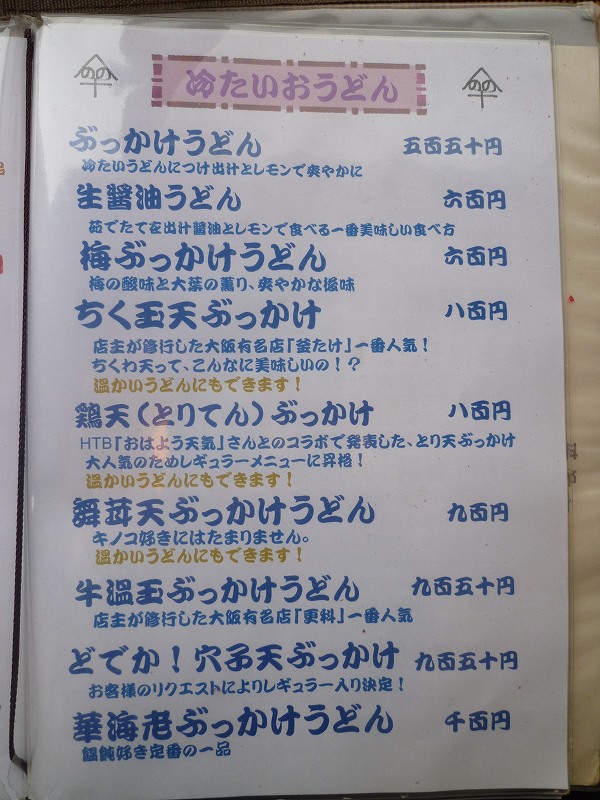 冷たいおうどん
ぶっかけうどん 五百五十円
冷たいうどんにつけ出汁とレモンで爽やかに
生醬油うどん 六百円
茹でたてを出汁醬油とレモンで食べる一番美味しい食べ方
梅ぶっかけうどん 六百円
梅の酸味と大葉の薫り、爽やかな後味
ちく玉天ぶっかけ 八百円
店主が修行した大阪有名店「釜たけ」一番人気！
ちくわ天って、こんなに美味しいの！？
温かいうどんにもできます！
鶏天（とりてん）ぶっかけ 八百円
HTB「おはよう天気」さんとのコラボで発表した、とり天ぶっかけ
大人気のためレギュラーメニューに昇格！
温かいうどんにもできます！
舞茸天ぶっかけうどん 九百円
キノコ好きにはたまりません。
温かいうどんにもできます！
牛温玉ぶっかけうどん 九百五十円
店主が修行した大阪有名店「更科」一番人気
どでか！穴子天ぶっかけ 九百五十円
お客様のリクエストによりレギュラー入り決定！
華海老ぶっかけうどん 千百円
饂飩好き定番の一品